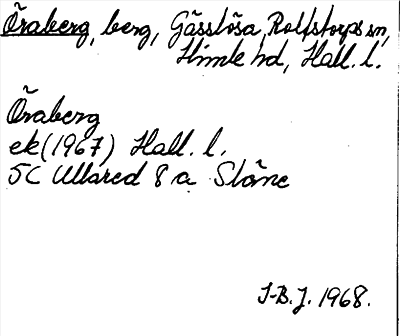 Öraberg, berg, Gässlösa, Rolfstorps sn,
Himle hd, Hall. l.
Öraberg
ek (1967) Hall. l.
5C Ullared 8 a Slöne
J-B. J. 1968.